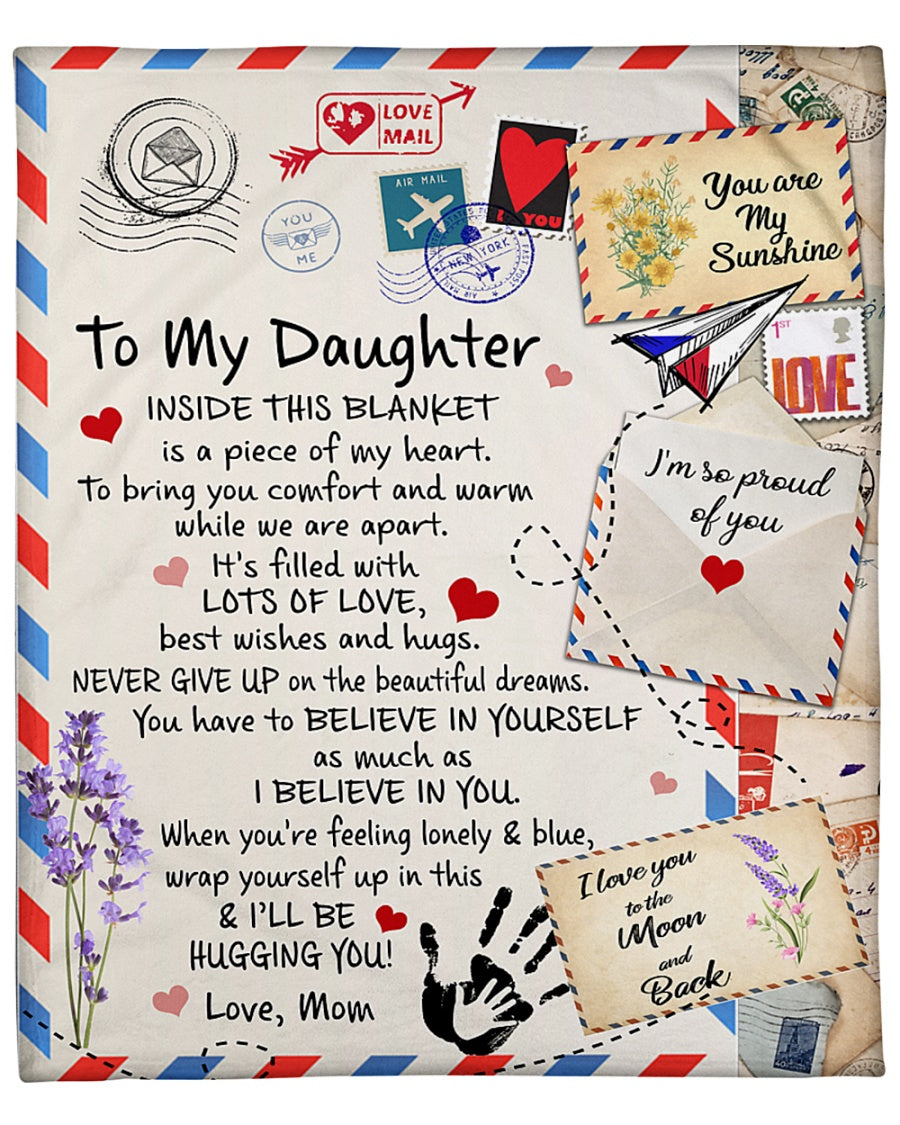 LOVE
MAIL
AIR MAIL
YOU
YOU
ME
NEW YORK
You are
My
Sunshine
1ST
LOVE
To My Daughter
INSIDE THIS BLANKET
is a piece of my heart.
To bring you comfort and warm
while we are apart.
It's filled with
LOTS OF LOVE,
best wishes and hugs.
NEVER GIVE UP on the beautiful dreams.
You have to BELIEVE IN YOURSELF
as much as
I BELIEVE IN YOU.
When you're feeling lonely & blue,
wrap yourself up in this
& I'LL BE
HUGGING YOU!
Love, Mom
I'm so proud
of you
I love you
to the
Moon
and
Back